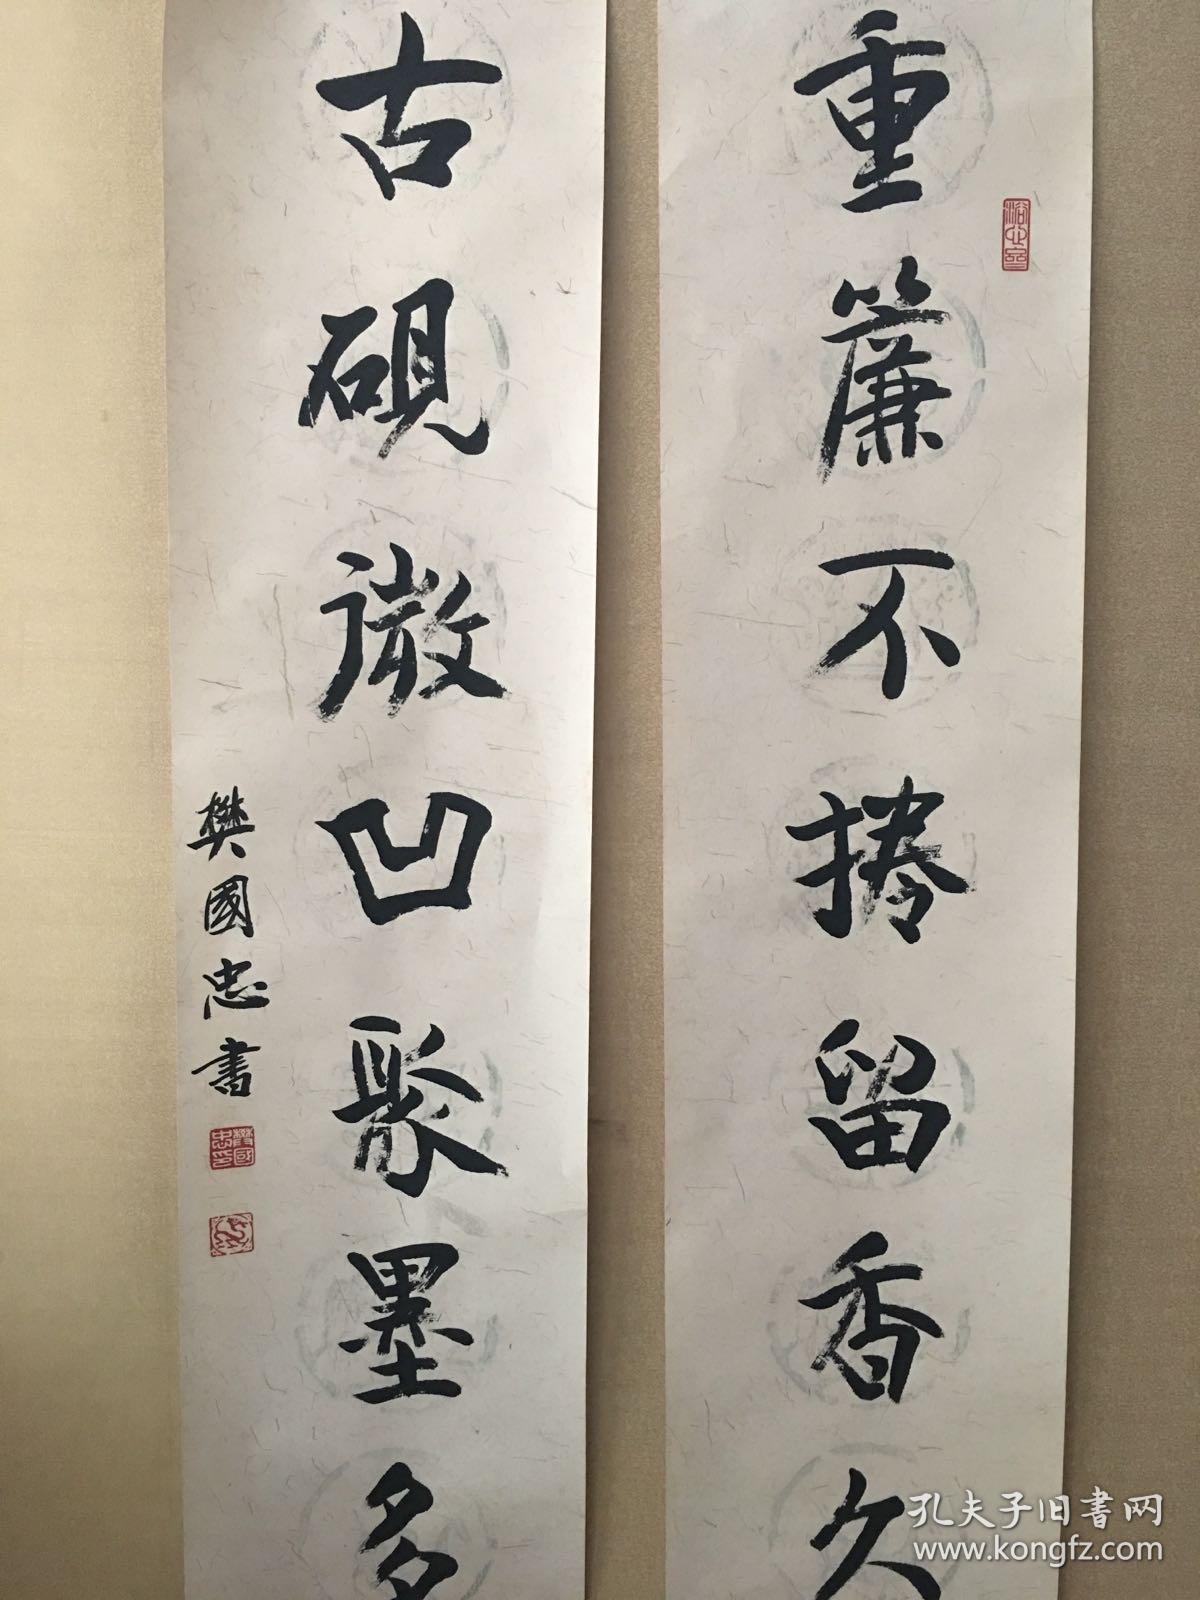 重簾不捲留香久
古硯微凹聚墨多
樊國忠書
樊國忠印
孔夫子旧书网
www.kongfz.com